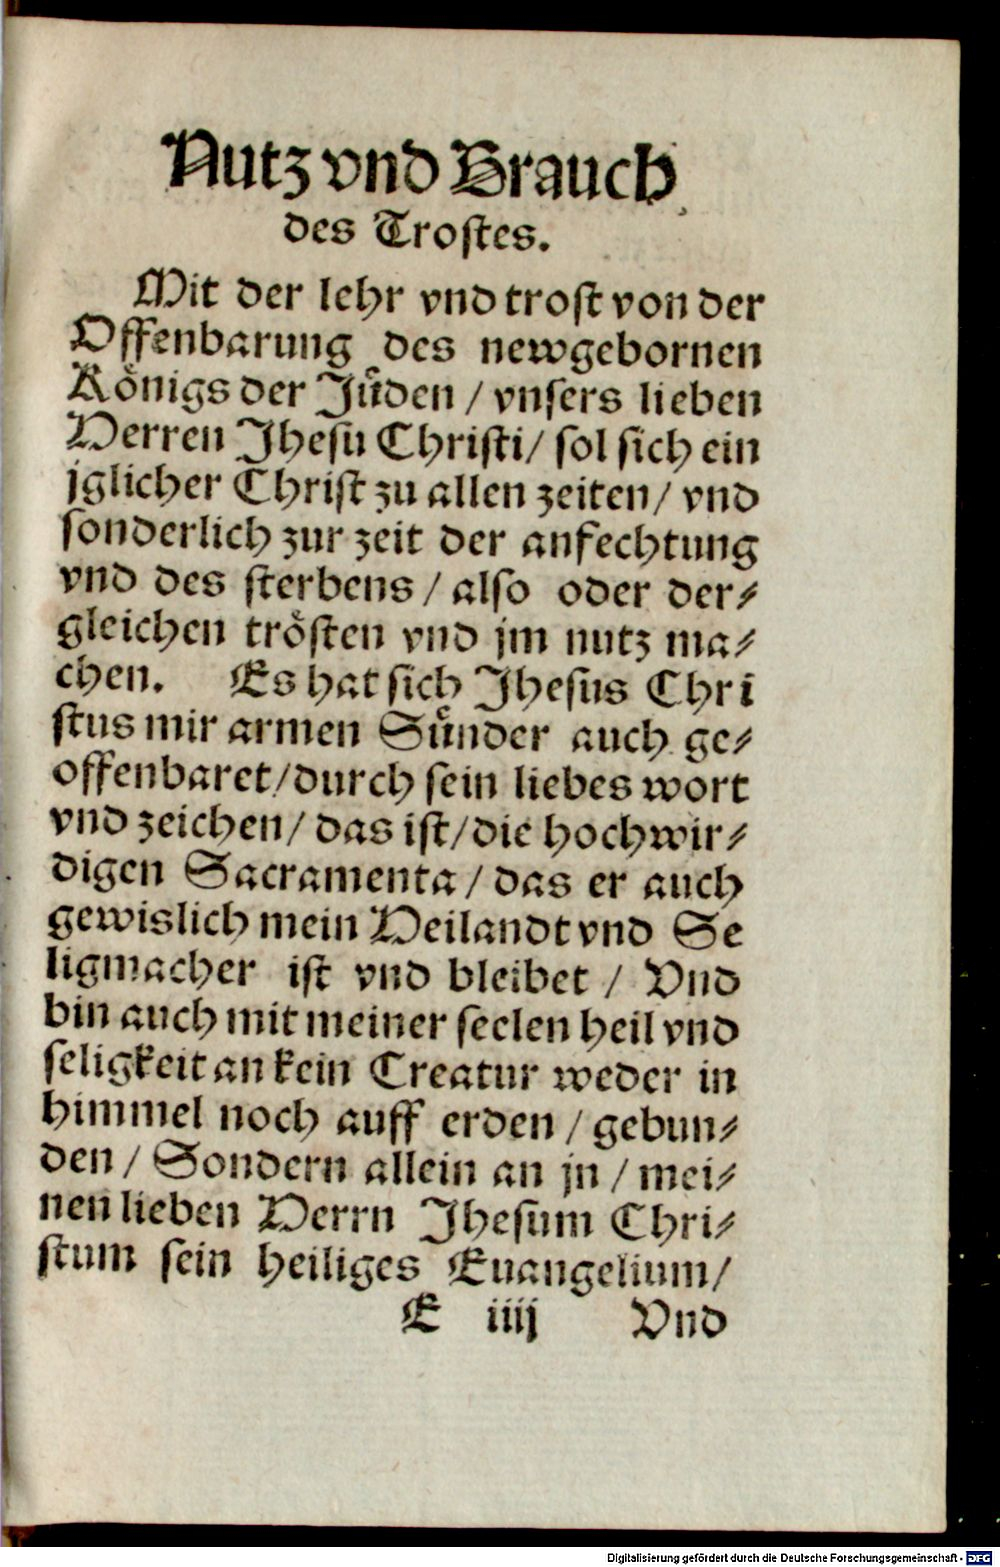 Nutz vnd Brauch
des Troſtes.
Mit der lehr vnd troſt von der
Offenbarung des newgebornen
Koͤnigs der Juͤden / vnſers lieben
Herren Jheſu Chriſti / ſol ſich ein
jglicher Chriſt zu allen zeiten / vnd
ſonderlich zur zeit der anfechtung
vnd des ſterbens / alſo oder der⸗
gleichen troͤſten vnd jm nutz ma⸗
chen. Es hat ſich Jheſus Chri
ſtus mir armen Suͤnder auch ge⸗
offenbaret / durch ſein liebes wort
vnd zeichen / das iſt / die hochwir⸗
digen Sacramenta / das er auch
gewislich mein Heilandt vnd Se
ligmacher iſt vnd bleibet / Vnd
bin auch mit meiner ſeelen heil vnd
ſeligkeit an kein Creatur weder in
himmel noch auff erden / gebun⸗
den / Sondern allein an jn / mei⸗
nen lieben Herrn Jheſum Chri⸗
ſtum ſein heiliges Euangelium /
E iiij Vnd
Digitalisierung gefördert durch die Deutsche Forschungsgemeinschaft - DFG